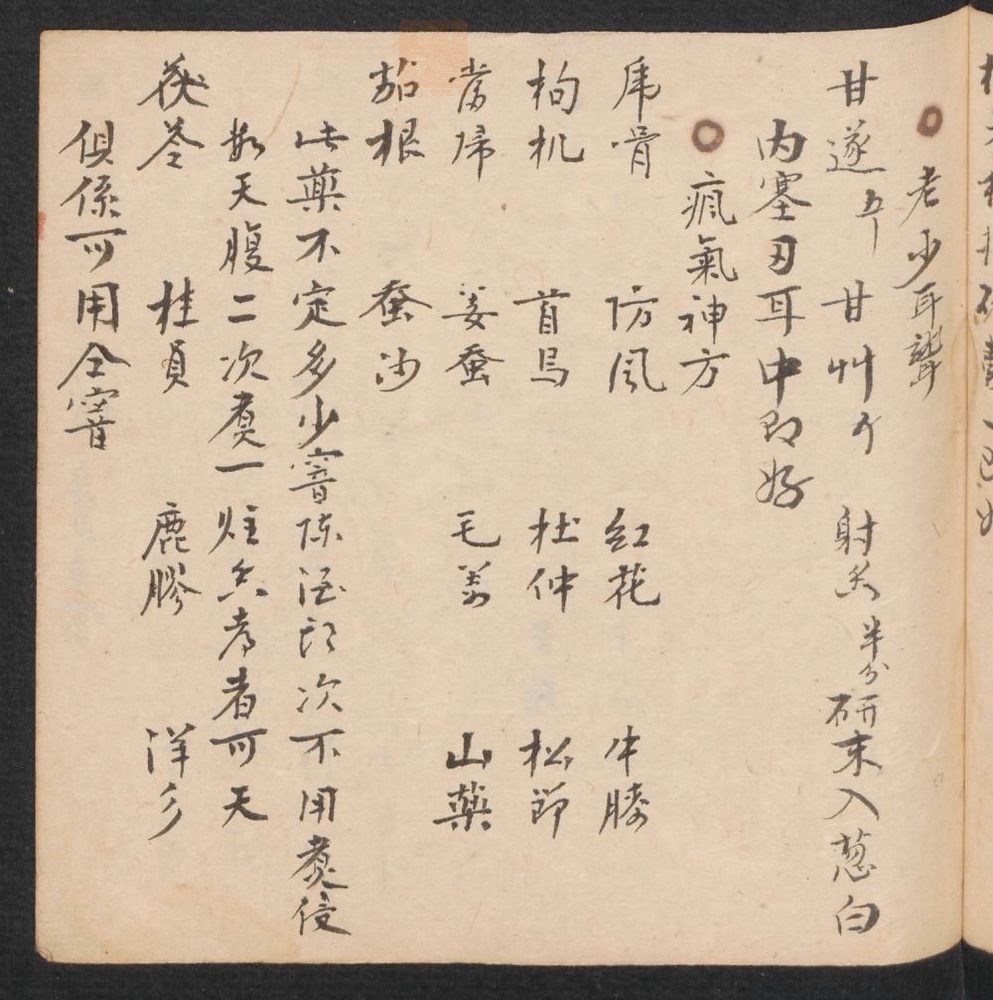 ○老少耳聾
甘遂 甘艸 射香半分研末入葱白
内塞刃耳中即好
○瘋氣神方
虎骨 防風 紅花 牛膝
枸杞 首烏 杜仲 松節
當歸 姜蚕 毛姜 山藥
茄根 蚕沙
此藥不定多少窨陈酒頭次不用煮侵
数天腹二次煮一炷香孝者可天
茯苓 桂員 鹿膠 洋
俱係可用仝窨